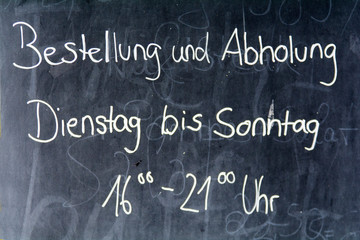 Bestellung und Abholung
Dienstag bis Sonntag
16⁰⁰ - 21⁰⁰ Uhr